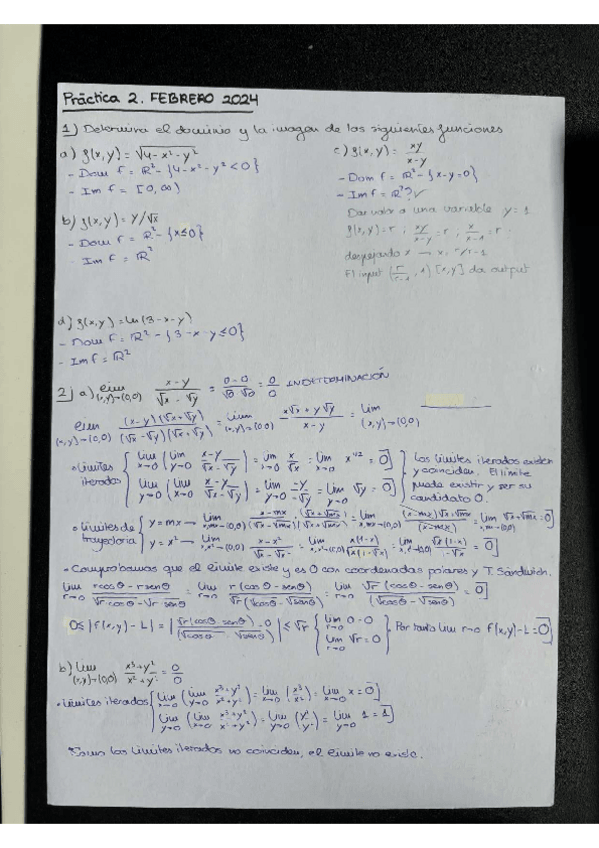 Práctica 2. FEBRERO 2024
1) Determina el dominio y la imagen de las siguientes funciones
a) f(x,y) = √4-x²-y²
- Dom f = ℝ² - {4-x²-y² < 0}
- Im f = [0, ∞)
b) f(x,y) = y/√x
- Dom f = ℝ² - {x≤0}
- Im f = ℝ²
c) f(x,y) = xy/x-y
- Dom f = ℝ² - {x-y=0}
- Im f = ℝ²?✓
Dar valor a una variable y=1
f(x,y)=r ; xy/x-y = r ; x/x-1 = r
despejando x → x = r/r-1
El input (r/r-1, 1) [x,y] da output
d) f(x,y) = ln(3-x-y)
- Dom f = ℝ² - {3-x-y≤0}
- Im f = ℝ²
2) a) lim (x,y)→(0,0) x-y/√x-√y = 0-0/√0-√0 = 0/0 INDETERMINACIÓN
lim (x,y)→(0,0) (x-y)(√x+√y)/(√x-√y)(√x+√y) = lim (x,y)→(0,0) x√x+y√y/x-y = lim (x,y)→(0,0)
• Límites iterados { lim x→0 (lim y→0 x-y/√x-√y) = lim x→0 x/√x = lim x→0 x^1/2 = 0
lim y→0 (lim x→0 x-y/√x-√y) = lim y→0 -y/-√y = lim y→0 √y = 0 }
Los límites iterados existen
y coinciden. El límite
puede existir y ser su
candidato 0.
• Límites de trayectoria { y = mx → lim x,mx→(0,0) (x-mx)/(√x-√mx) · (√x+√mx)/(√x+√mx) = lim x,mx→(0,0) (x-mx)(√x+√mx)/(x-mx) = lim x,mx→(0,0) √x+√mx = 0
y = x² → lim x,x²→(0,0) x-x²/√x-√x² = lim x,x²→(0,0) x(1-x)/√x(1-√x) = lim x,x²→(0,0) √x(1-x)/1-√x = 0
• Comprobamos que el límite existe y es 0 con coordenadas polares y T. Sándwich.
lim r→0 r cosθ - r senθ/√r cosθ - √r senθ = lim r→0 r(cosθ - senθ)/√r(√cosθ - √senθ) = lim r→0 √r(cosθ - senθ)/(√cosθ - √senθ) = 0
0≤|f(x,y)-L| = |√r(cosθ-senθ)/√cosθ-√senθ - 0| ≤ √r { lim r→0 0 = 0
lim r→0 √r = 0 } Por tanto lim r→0 f(x,y)-L = 0
b) lim (x,y)→(0,0) x³+y²/x²+y² = 0/0
• Límites iterados { lim x→0 (lim y→0 x³+y²/x²+y²) = lim x→0 (x³/x²) = lim x→0 x = 0
lim y→0 (lim x→0 x³+y²/x²+y²) = lim y→0 (y²/y²) = lim y→0 1 = 1
Como los límites iterados no coinciden, el límite no existe.